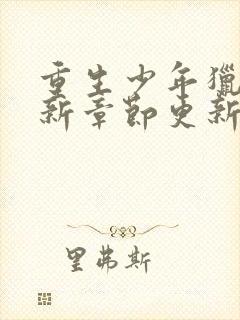 重生少年猎
新章节更新
里弗斯